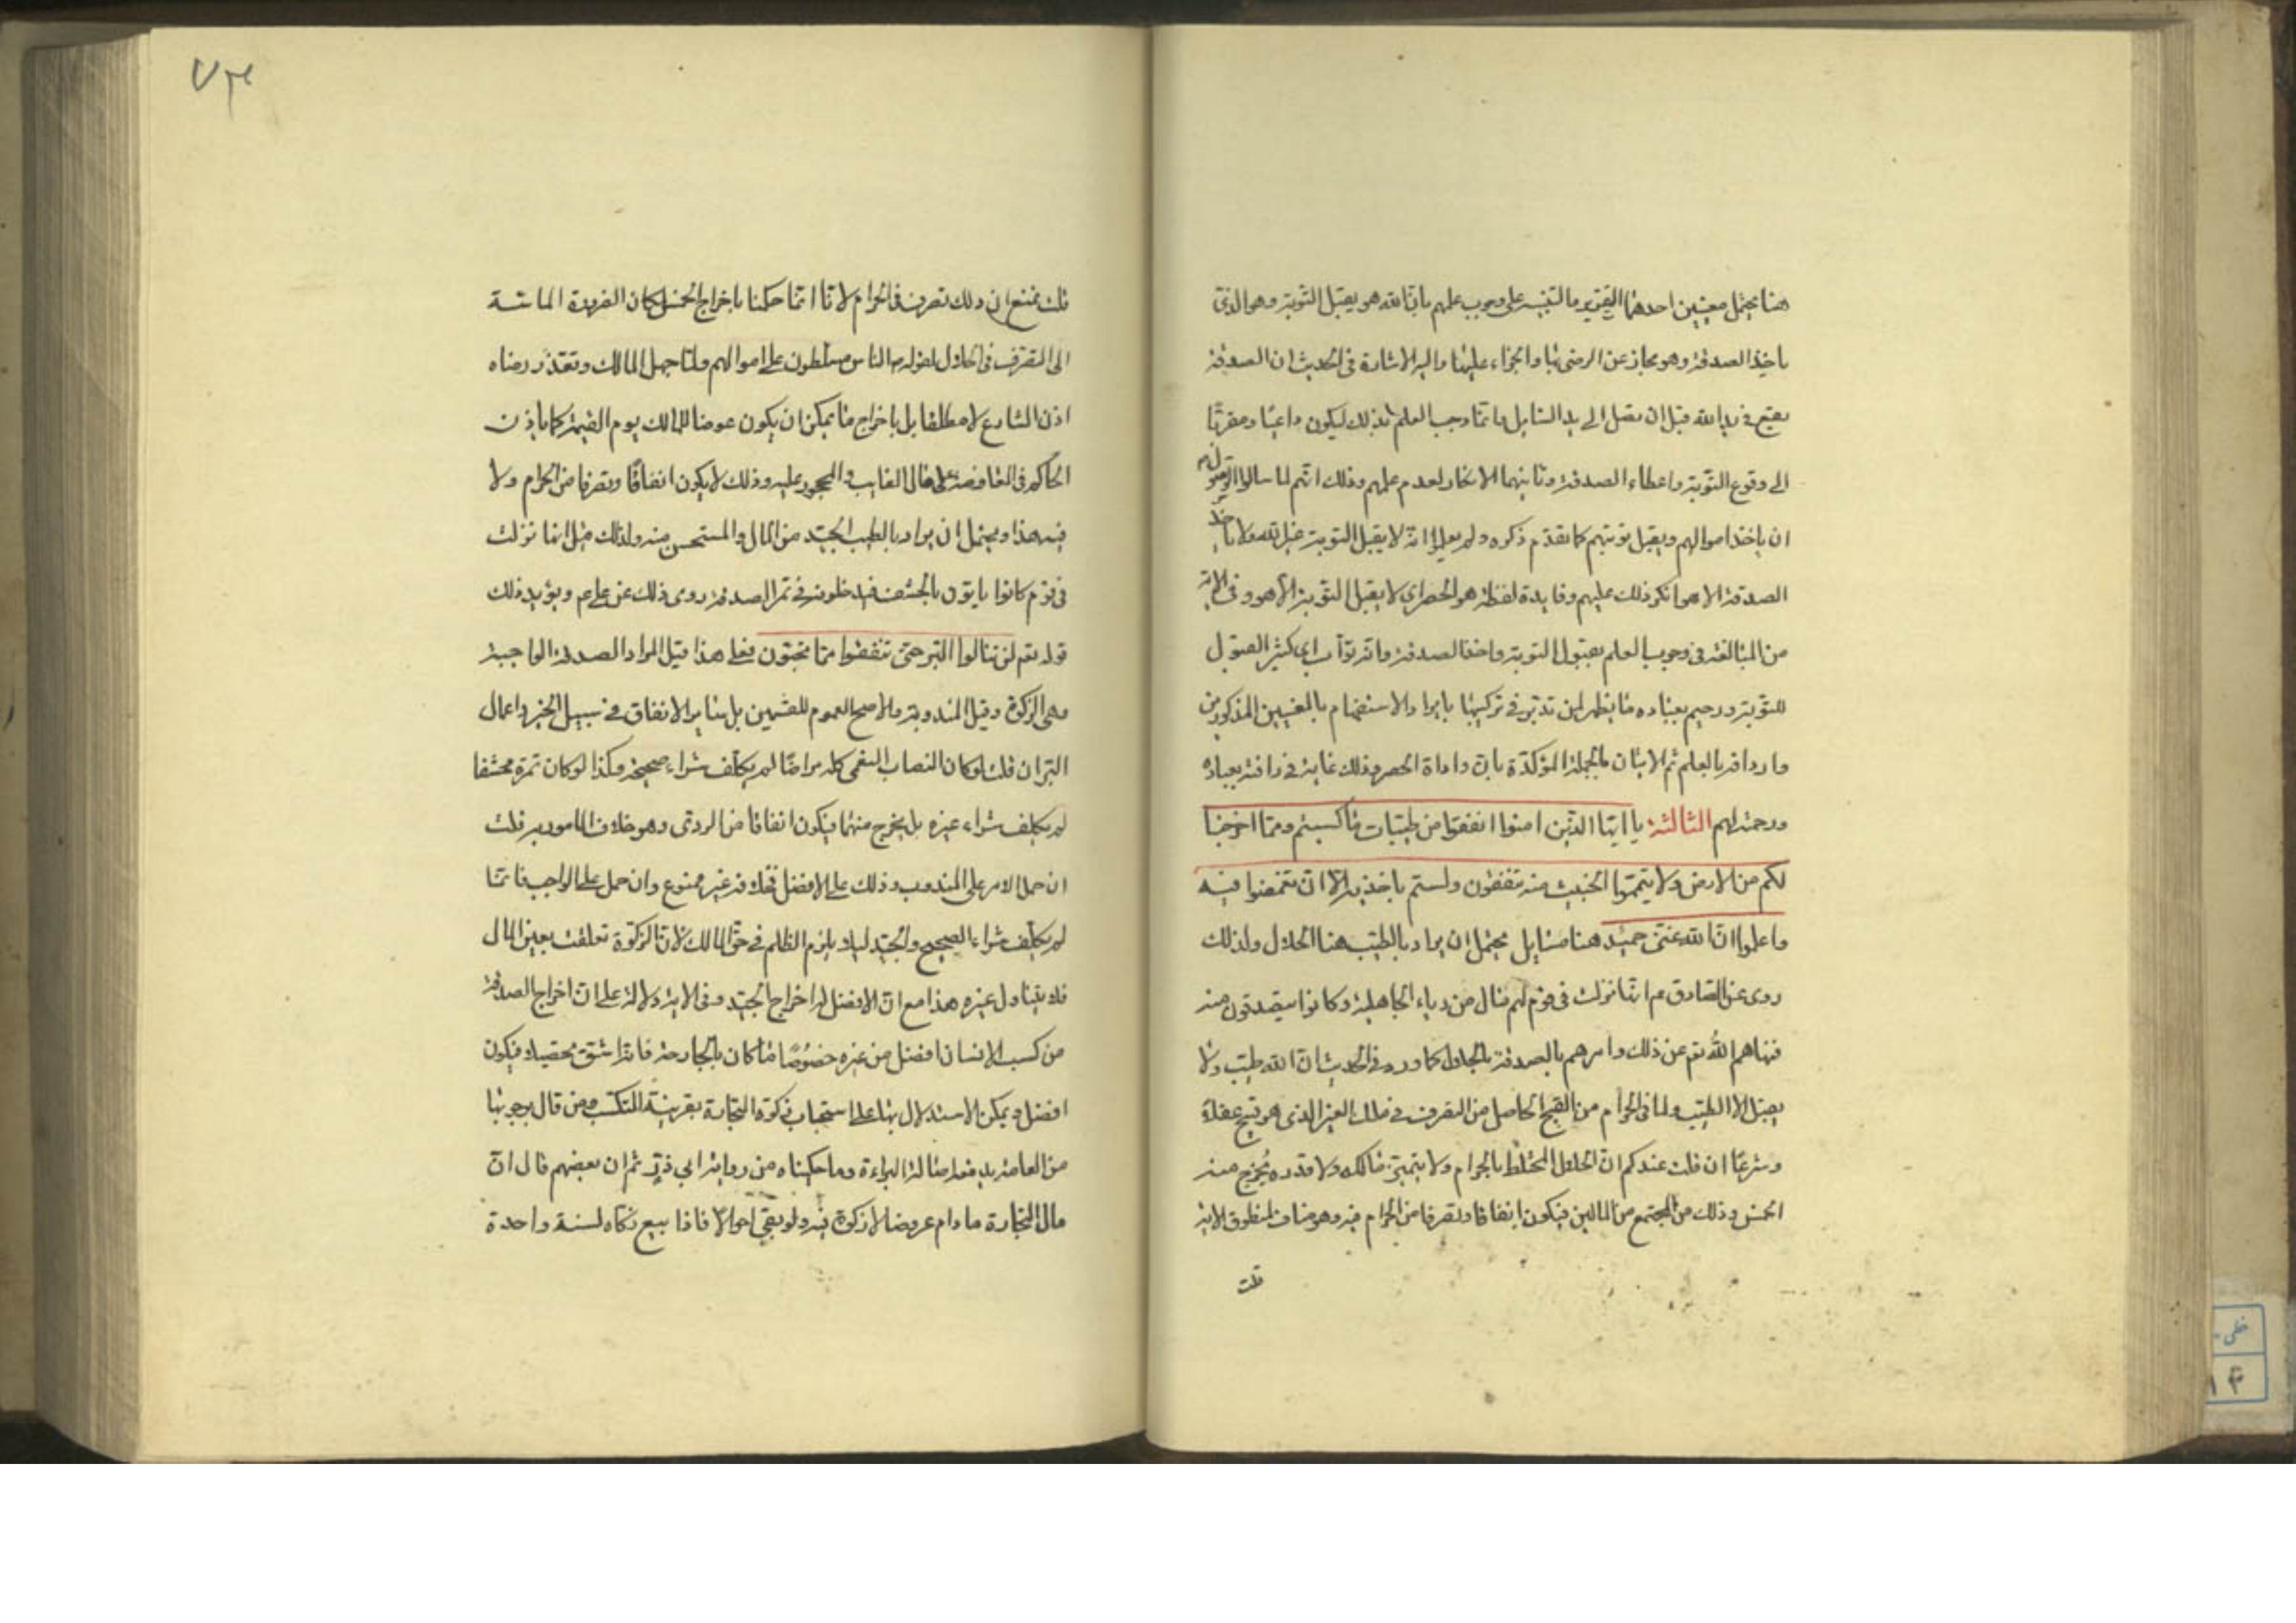 هنا يحتمل معنيين احدهما التقرير والتنبيه على وجوب علمهم بان الله هو يقبل التوبة وهو الذى
ياخذ الصدقة وهو مجاز عن الرضى بها والجزاء عليها واليه الاشارة فى الحديث ان الصدقة
تقع فى يد الله قبل ان تصل الى يد السايل وانما وجب العلم بذلك ليكون داعيا ومقربا
الى وقوع التوبة واعطاء الصدقة وثانيهما الانكار لعدم علمهم وذلك انهم لما سالوا الرسول ص
ان ياخذ اموالهم ويقبل توبتهم كما تقدم ذكره ولم يعلموا انه لا يقبل التوبة غير الله ولا ياخذ
الصدقة الا هو انكر ذلك عليهم وفايدة لفظة هو الحصر اى لا يقبل التوبة الا هو وفى الاية
من المبالغة فى وجوب العلم بقبول التوبة واخذ الصدقة وانه تواب اى كثير القبول
للتوبة ورحيم بعباده ما يظهر لمن تدبر فى تركيبها بايراد الاستفهام بالمعنيين المذكورين
وارداف بالعلم ثم الاتيان بالجملة المؤكدة بان واداة الحصر وذلك غاية فى رافته بعباده
ورحمته لهم الثالثة يا ايها الذين امنوا انفقوا من طيبات ما كسبتم ومما اخرجنا
لكم من الارض ولا يتمموا الخبيث منه تنفقون ولستم باخذيه الا ان تغمضوا فيه
واعلموا ان الله غنى حميد هنا مسايل يحتمل ان يراد بالطيب هنا الحلال ولذلك
روى عن الصادق عم انها نزلت فى قوم لهم مال من رباء الجاهلية وكانوا يتصدقون منه
فنهاهم الله تعم عن ذلك وامرهم بالصدقة بالحلال كما ورد فى الحديث ان الله طيب ولا
يقبل الا الطيب ولما فى الحرام من القبح الحاصل من التصرف فى مال الغير الذى هو قبيح عقلا
وشرعا ان قلت عندكم ان الحلال المختلط بالحرام ولا يتميز مالكه ولا قدره يخرج منه
الخمس وذلك من المجتمع من المالين فيكون انفاقا وتصرفا من الحرام فيه وهو مناف لمنطوق الاية
قلت
٧٣
قلت نمنع ان ذلك تصرف فى الحرام لانا انما حكمنا باخراج الخمس لمكان الضرورة الماسة
الى التصرف فى الحلال لقوله ص الناس مسلطون على اموالهم ولما جهل المالك وتعذر رضاه
اذن الشارع لا مطلقا بل باخراج ما يمكن ان يكون عوضا للمالك يوم القيمة كما ياذن
الحاكم فى المعاوضة على مال الغايب والمحجور عليه وذلك لا يكون انفاقا وتصرفا من الحرام ولا
فيه هذا ويحتمل ان يراد بالطيب الجيد من المال والمستحسن منه ولذلك قيل انما نزلت
فى قوم كانوا ياتون بالحشف فيدخلونه فى تمر الصدقة روى ذلك عن على عم ويؤيد ذلك
قوله تعم لن تنالوا البر حتى تنفقوا مما تحبون فعلى هذا قيل المراد الصدقة الواجبة
وهى الزكوة وقيل المندوبة والاصح العموم للقسمين بل ساير الانفاق فى سبيل الخير واعمال
البر ان قلت لو كان النصاب النعمى كله مراضا لم يكلف شراء صحيحة وكذا لو كان تمره محشفا
لم يكلف شراء غيره بل يخرج منهما فيكون انفاقا من الردى وهو خلاف المامور به قلت
ان حمل الامر على المندوب وذلك على الافضل فخلافه غير ممنوع وان حمل على الواجب فانما
لم يكلف شراء الصحيح والجيد ليلا يلزم الظلم فى حق المالك لان الزكوة تعلقت بعين المال
فلا يتناول غيره هذا مع ان الافضل له اخراج الجيد وفى الاية دلالة على ان اخراج الصدقة
من كسب الانسان افضل من غيره خصوصا ما كان بالجارحة فانه اشق تحصيلا فيكون
افضل ويمكن الاستدلال بها على استحباب زكوة التجارة بقرينة التكسب ومن قال بوجوبها
من العامة يدفعه اصالة البراءة وما حكيناه من رواية ابى ذر ثم ان بعضهم قال ان
مال التجارة ما دام عروضا لا زكوة فيه ولو بقى احوالا فاذا بيع زكاه لسنة واحدة